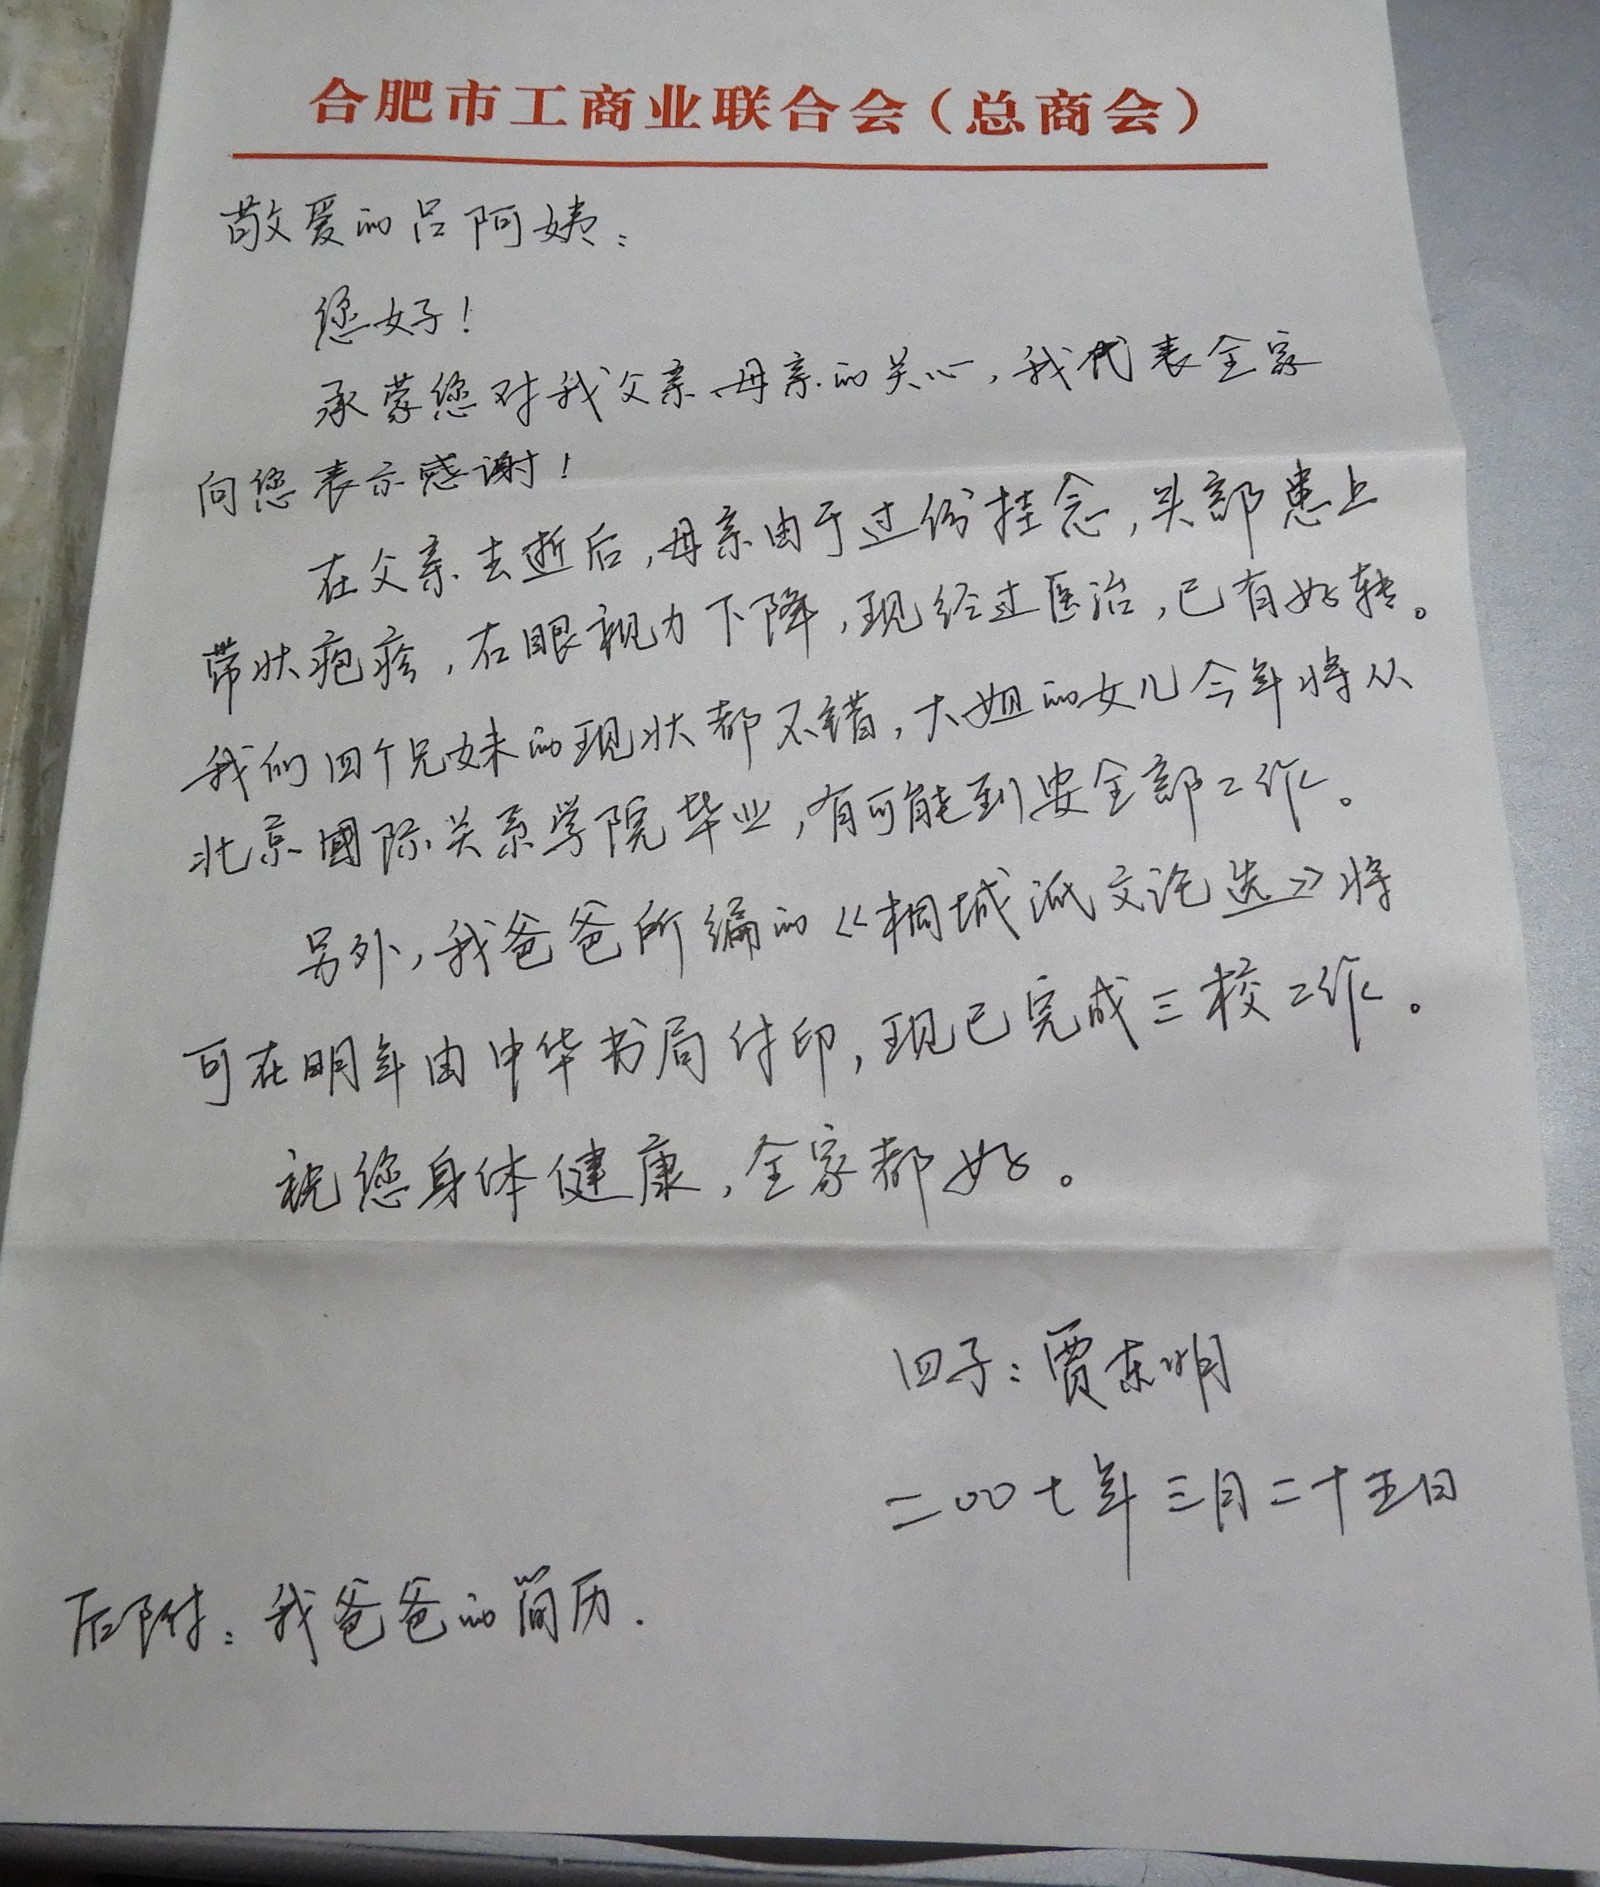 合肥市工商业联合会（总商会）
敬爱的吕阿姨：
您好！
承蒙您对我父亲、母亲的关心，我代表全家
向您表示感谢！
在父亲去逝后，母亲由于过份挂念，头部患上
带状疱疹，右眼视力下降，现经过医治，已有好转。
我们四个兄妹的现状都不错，大姐的女儿今年将从
北京國际关系学院毕业，有可能到安全部工作。
另外，我爸爸所编的《桐城派文论选》将
可在明年由中华书局付印，现已完成三校工作。
祝您身体健康，全家都好。
四子：贾东明
二〇〇七年三月二十五日
后附：我爸爸的简历.